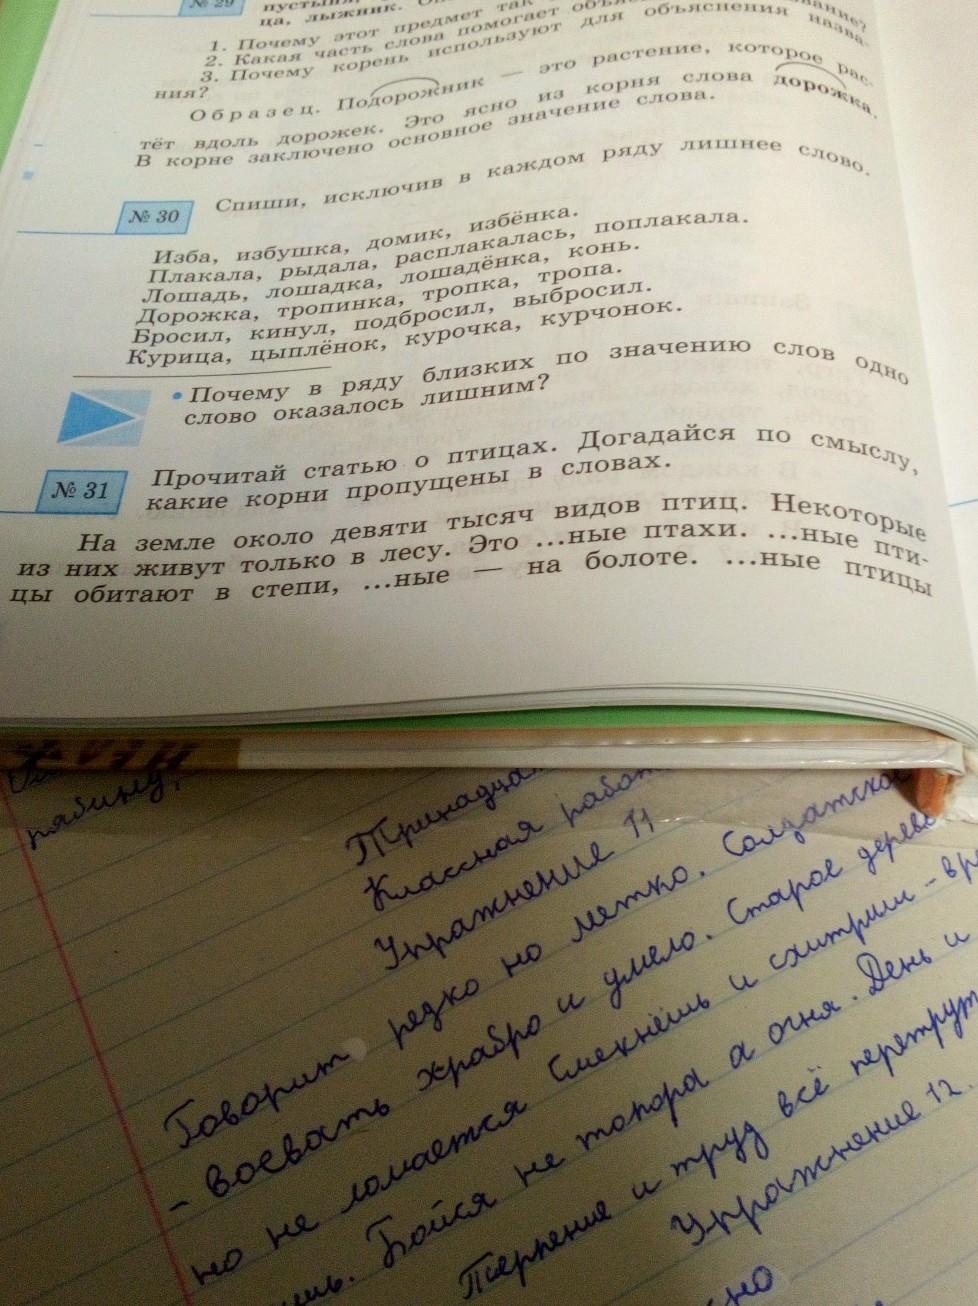 № 29
ца, лыжник.
1. Почему этот предмет так
2. Какая часть слова помогает
3. Почему корень используют для объяснения назва-
ния?
Образец. Подорожник — это растение, которое рас-
тёт вдоль дорожек. Это ясно из корня слова дорожка.
В корне заключено основное значение слова.
№ 30
Спиши, исключив в каждом ряду лишнее слово.
Изба, избушка, домик, избёнка.
Плакала, рыдала, расплакалась, поплакала.
Лошадь, лошадка, лошадёнка, конь.
Дорожка, тропинка, тропка, тропа.
Бросил, кинул, подбросил, выбросил.
Курица, цыплёнок, курочка, курчонок.
• Почему в ряду близких по значению слов одно
слово оказалось лишним?
№ 31
Прочитай статью о птицах. Догадайся по смыслу,
какие корни пропущены в словах.
На земле около девяти тысяч видов птиц. Некоторые
из них живут только в лесу. Это ...ные птахи. ...ные пти-
цы обитают в степи, ...ные — на болоте. ...ные птицы
рябину,
Классная
Упражнение 11
Говорит редко но метко.
- воевать храбро и умело. Старое
но не ломается Смекнёшь и схитрил -
Бойся не топора а огня. День и
Терпение и труд всё перетрут
Упражнение 12.